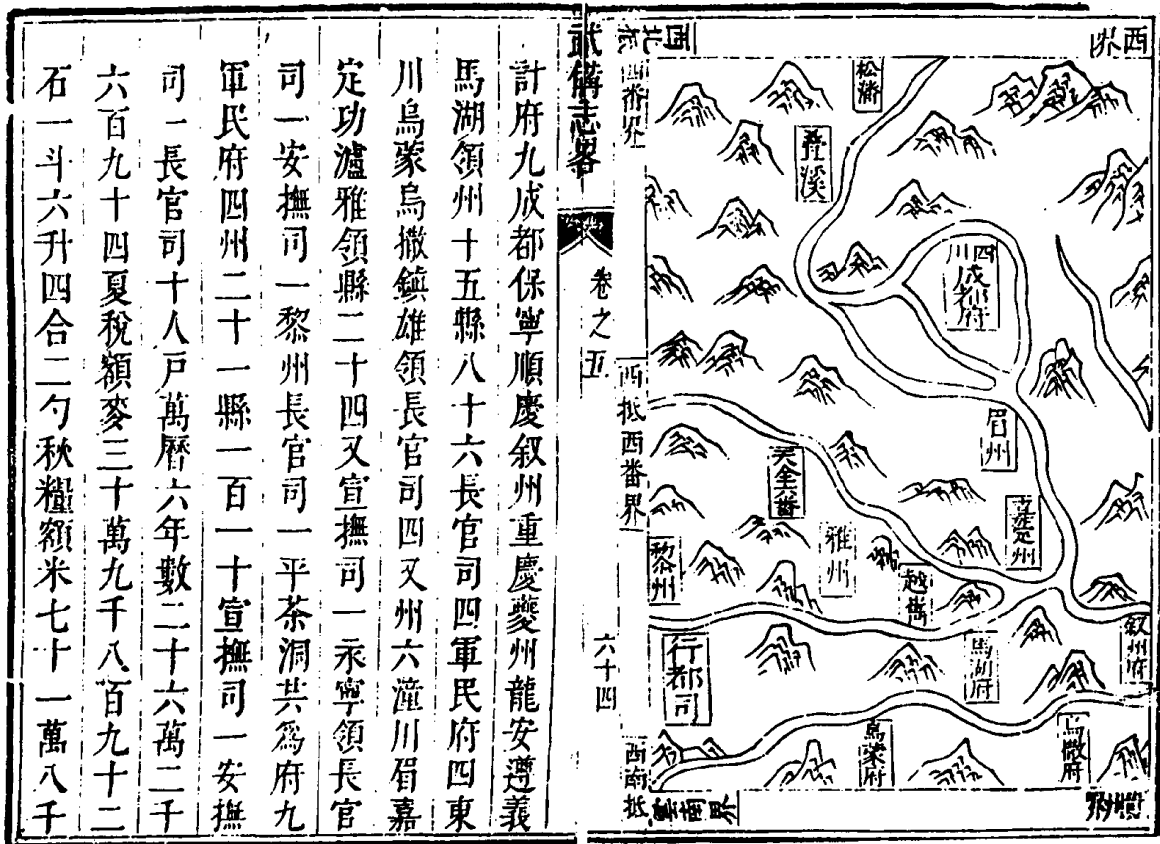 西界
西北抵
西番界
松潘
疊溪
四川成都府
眉州
天全六番
雅州
嘉定州
黎州
越嶲
行都司
馬湖府
敘州府
烏蒙府
烏撒府
西抵西番界
西南抵
雲南界
武備志畧
卷之五
六十四
計府九成都保寧順慶叙州重慶夔州龍安遵義
馬湖領州十五縣八十六長官司四軍民府四東
川烏蒙烏撒鎮雄領長官司四又州六潼川眉嘉
定功瀘雅領縣二十四又宣撫司一永寧領長官
司一安撫司一黎州長官司一平茶洞共為府九
軍民府四州二十一縣一百一十宣撫司一安撫
司一長官司十人戸萬曆六年數二十六萬二千
六百九十四夏稅額麥三十萬九千八百九十二
石一斗六升四合二勺秋糧額米七十一萬八千